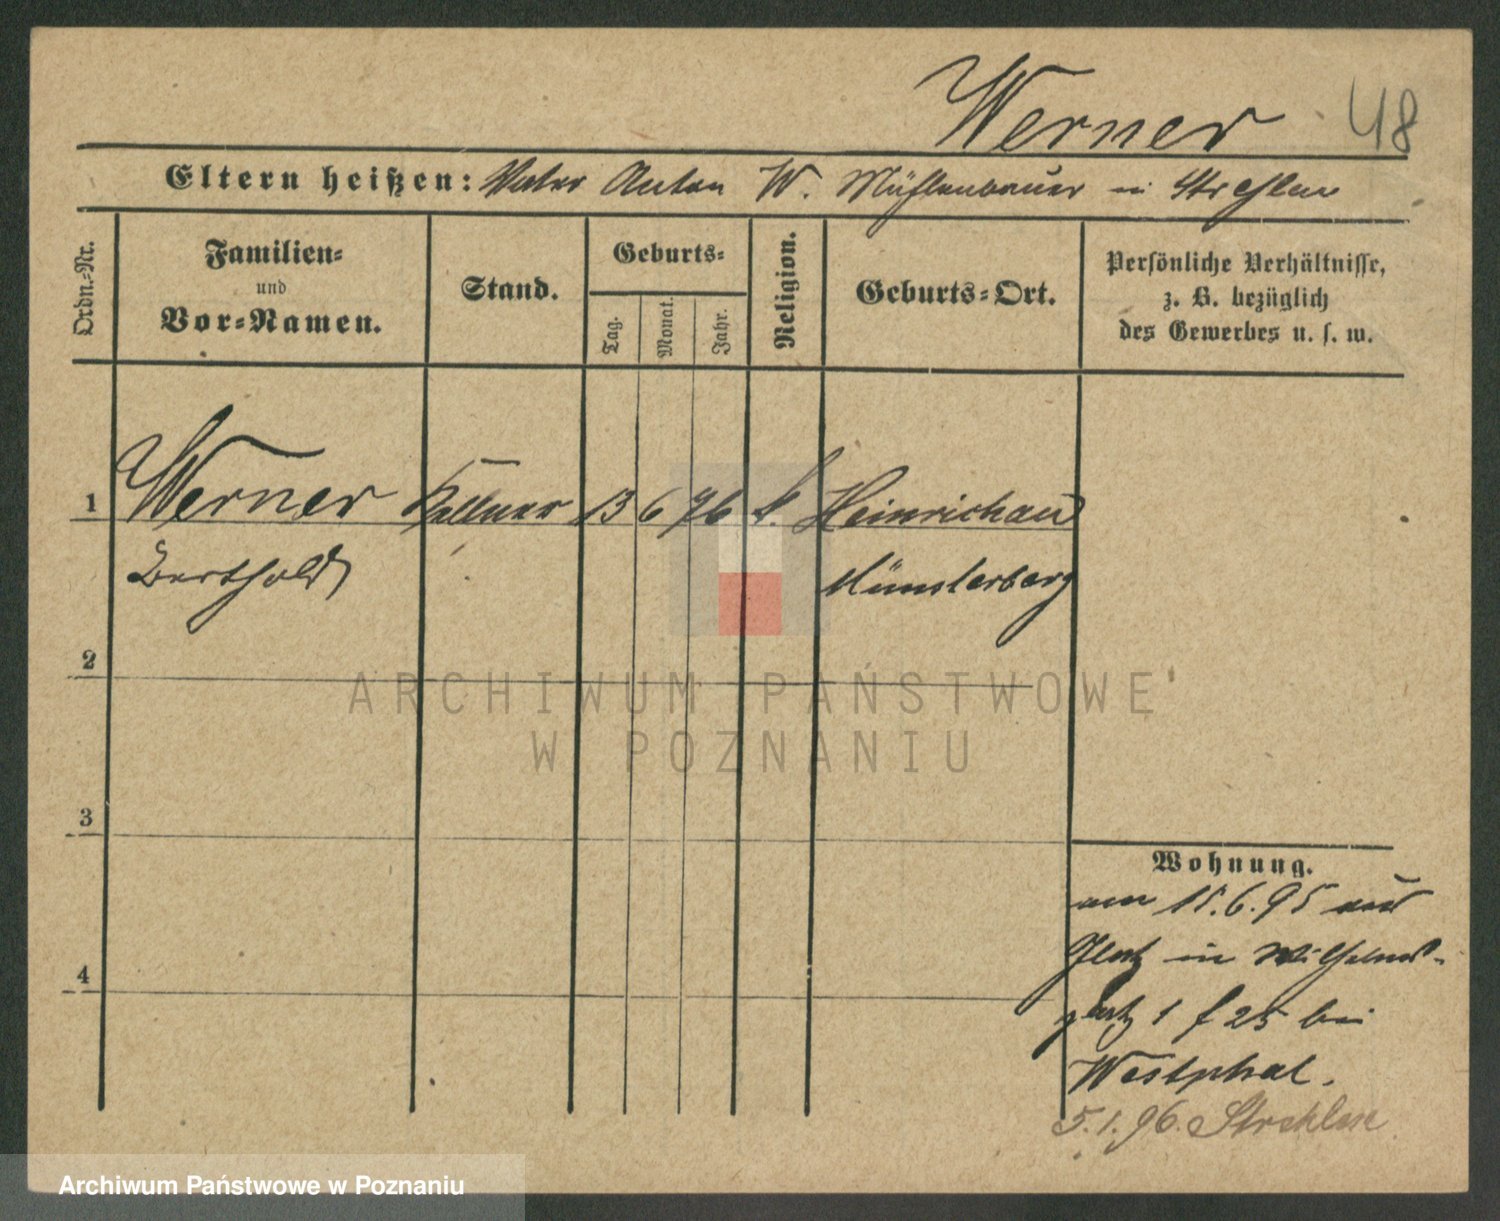 Werner 48
Eltern heißen: Vater Anton W. Mühlenbauer in Strehlen
Ordn.-Nr.
Familien-
und
Vor-Namen.
Stand.
Geburts-
Tag.
Monat.
Jahr.
Religion.
Geburts-Ort.
Persönliche Verhältnisse,
z. B. bezüglich
des Gewerbes u. s. w.
1 Werner Kellner 13 6 76 k. Heinrichau
Berthold Münsterberg
2
3
4
Wohnung.
am 15.6.95 aus
Glatz in Wilhelms-
platz 1 f 25 bei
Westphal.
5.1.96. Strehlen
ARCHIWUM PAŃSTWOWE
W POZNANIU
Archiwum Państwowe w Poznaniu